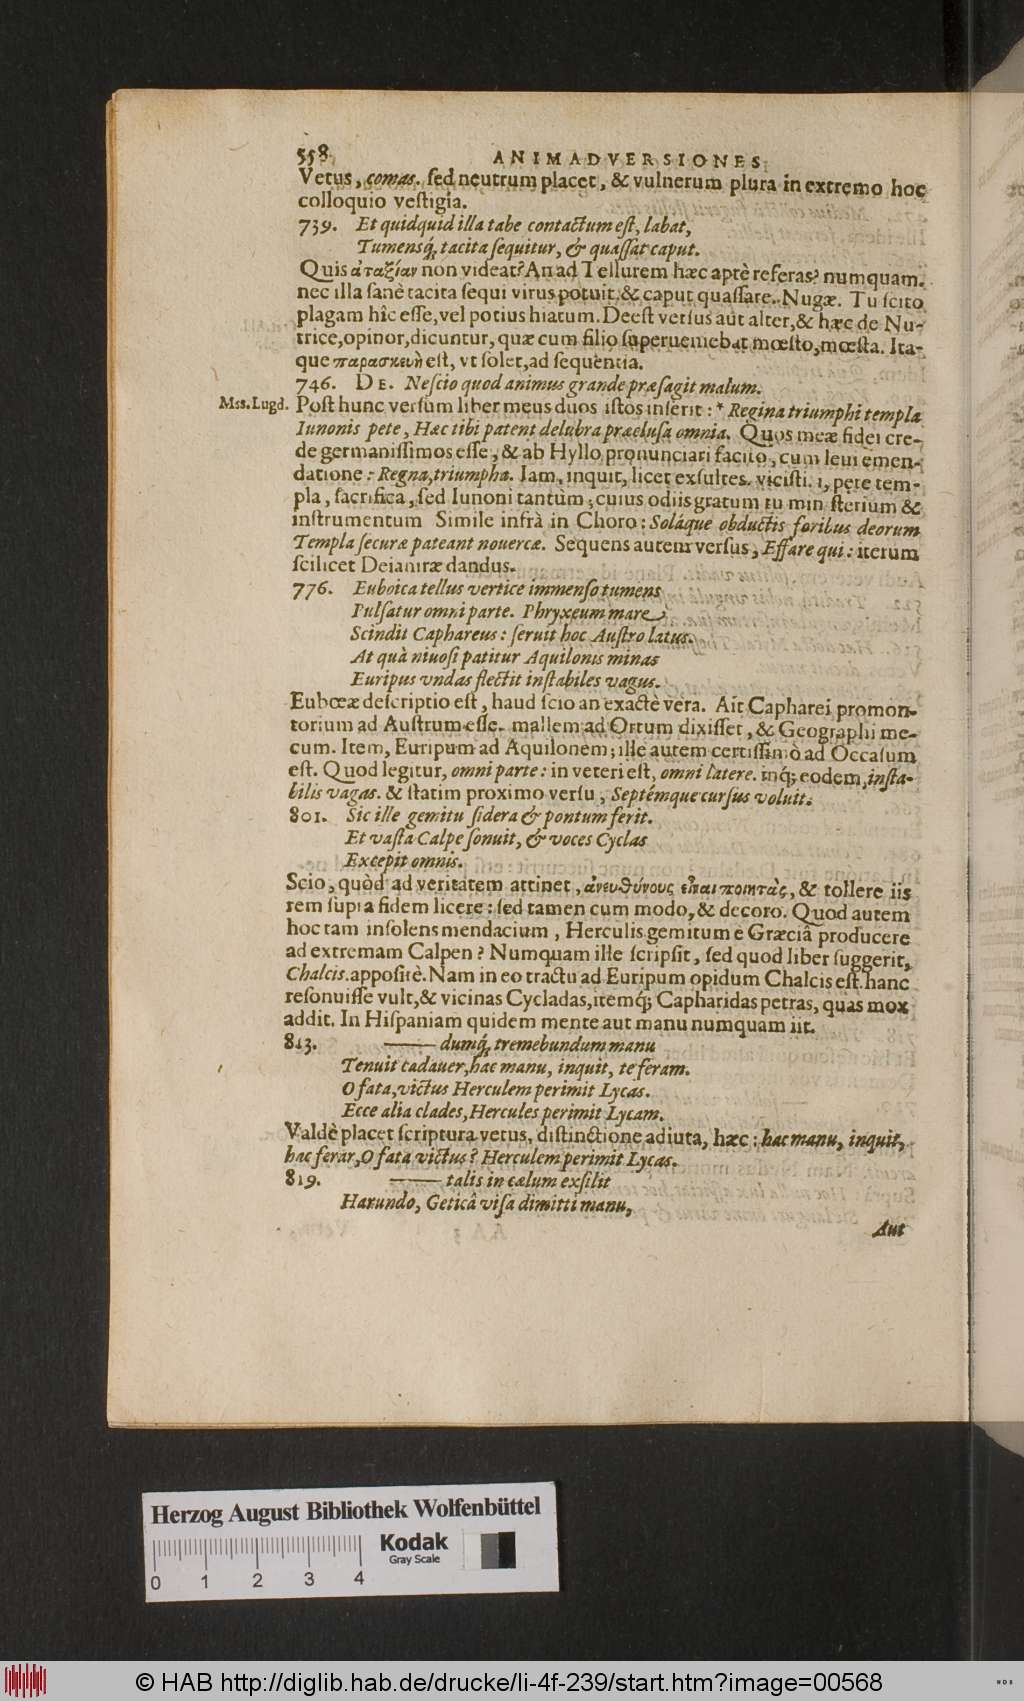 558 ANIMADVERSIONES
Vetus, comas. ſed neutrum placet, & vulnerum plura in extremo hoc
colloquio veſtigia.
739. Et quidquid illa tabe contactum eſt, labat,
Tumensq́, tacita ſequitur, & quaſſat caput.
Quis ἀταξίαν non videat? An ad Tellurem hæc aptè referas? numquam.
nec illa ſanè tacita ſequi virus potuit, & caput quaſſare. Nugæ. Tu ſcito
plagam hîc eſſe, vel potius hiatum. Deeſt verſus aut alter, & hæc de Nu-
trice, opinor, dicuntur, quæ cum filio ſuperueniebat mœſto, mœſta. Ita-
que παρασκευὴ eſt, vt ſolet, ad ſequentia.
746. DE. Neſcio quod animus grande præſagit malum.
Mss. Lugd. Poſt hunc verſum liber meus duos iſtos inſerit: * Regina triumphi templa
Iunonis pete, Hæc tibi patent delubra præcluſa omnia. Quos meæ fidei cre-
de germaniſſimos eſſe, & ab Hyllo pronunciari facito, cum leui emen-
datione: Regna, triumpha. Iam, inquit, licet exſultes. viciſti. i, pete tem-
pla, ſacrifica, ſed Iunoni tantùm, cuius odiis gratum tu min ſterium &
inſtrumentum Simile infrà in Choro: Soláque obductis foribus deorum
Templa ſecuræ pateant nouercæ. Sequens autem verſus, Effare qui: iterum
ſcilicet Deianiræ dandus.
776. Euboica tellus vertice immenſo tumens
Pulſatur omni parte. Phryxeum mare
Scindit Caphareus: ſeruit hoc Auſtro latus.
At quà niuoſi patitur Aquilonis minas
Euripus vndas flectit inſtabiles vagus.
Eubœæ deſcriptio eſt, haud ſcio an exactè vera. Ait Capharei promon-
torium ad Auſtrum eſſe. mallem ad Ortum dixiſſet, & Geographi me-
cum. Item, Euripum ad Aquilonem; ille autem certiſſimò ad Occaſum
eſt. Quod legitur, omni parte: in veteri eſt, omni latere. inq́; eodem, inſta-
bilis vagas. & ſtatim proximo verſu, Septémque curſus voluit.
801. Sic ille gemitu ſidera & pontum ferit.
Et vaſta Calpe ſonuit, & voces Cyclas
Excepit omnis.
Scio, quòd ad veritatem attinet, ἀνευθύνους εἶναι ποιητὰς, & tollere iis
rem ſupra fidem licere: ſed tamen cum modo, & decoro. Quod autem
hoc tam inſolens mendacium, Herculis gemitum è Græciâ producere
ad extremam Calpen? Numquam ille ſcripſit, ſed quod liber ſuggerit,
Chalcis. appoſitè. Nam in eo tractu ad Euripum opidum Chalcis eſt. hanc
reſonuiſſe vult, & vicinas Cycladas, itemq́; Capharidas petras, quas mox
addit. In Hiſpaniam quidem mente aut manu numquam iit.
813. —— dumq́, tremebundum manu
Tenuit cadauer, hac manu, inquit, te feram.
O fata, victus Herculem perimit Lycas.
Ecce alia clades, Hercules perimit Lycam.
Valdè placet ſcriptura vetus, diſtinctione adiuta, hæc: hac manu, inquit,
hac ferar, O fata victus? Herculem perimit Lycas.
819. —— talis in cælum exſilit
Harundo, Geticâ viſa dimitti manu,
Aut
Herzog August Bibliothek Wolfenbüttel
Kodak
Gray Scale
0 1 2 3 4
© HAB http://diglib.hab.de/drucke/li-4f-239/start.htm?image=00568